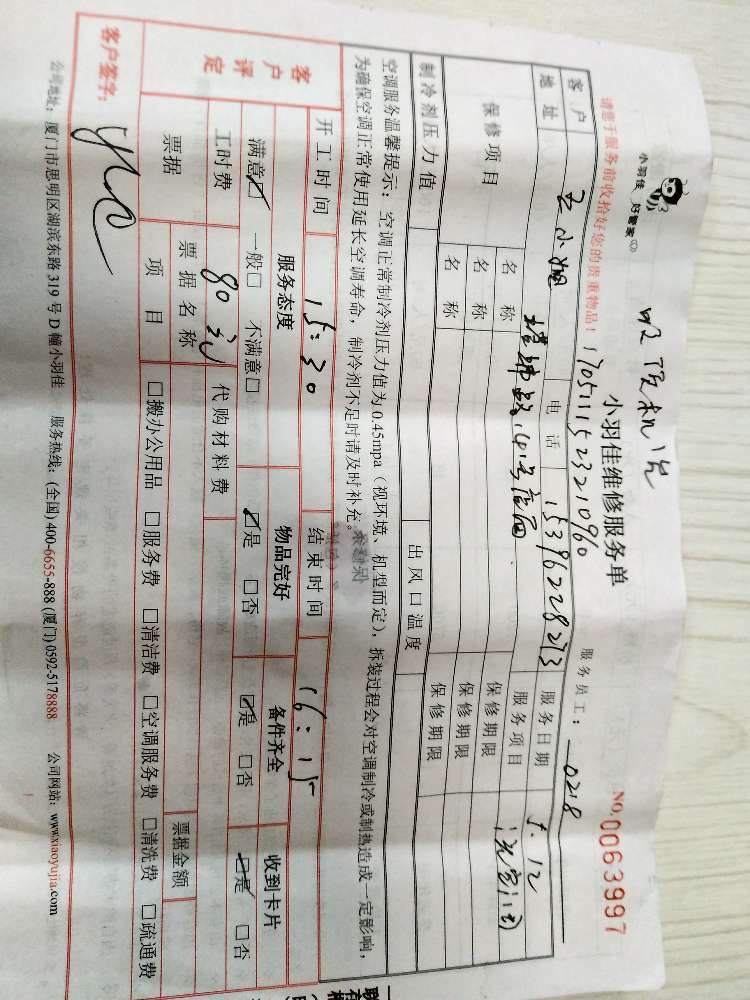 小羽佳 好管家
吸顶机洗
请您于服务前收拾好您的贵重物品！
1705111523210960
小羽佳维修服务单
服务员工：0218
NO.0063997
客户 王小姐 电话 15396228273 服务日期 5.12
地址 服务项目
保修项目 名称 保修期限
名称 保修期限
名称 保修期限
制冷剂压力值 出风口温度
空调服务温馨提示：空调正常制冷剂压力值为0.45mpa（视环境、机型而定），拆装过程会对空调制冷或制热造成一定影响，
为确保空调正常使用延长空调寿命，制冷剂不足时请及时补充。
开工时间 15:30 结束时间 16:15
客户评定 服务态度 物品完好 备件齐全 收到卡片
满意☑ 一般□ 不满意□ ☑是 □否 ☑是 □否 ☑是 □否
工时费 80元 代购材料费
票据 票据名称 票据金额
项目 □搬办公用品 □服务费 □清洁费 □空调服务费 □清洗费 □疏通费
客户签字：
公司地址：厦门市思明区湖滨东路319号D幢小羽佳 服务热线：(全国) 400-6655-888 (厦门) 0592-5178888 公司网站：www.xiaoyujia.com